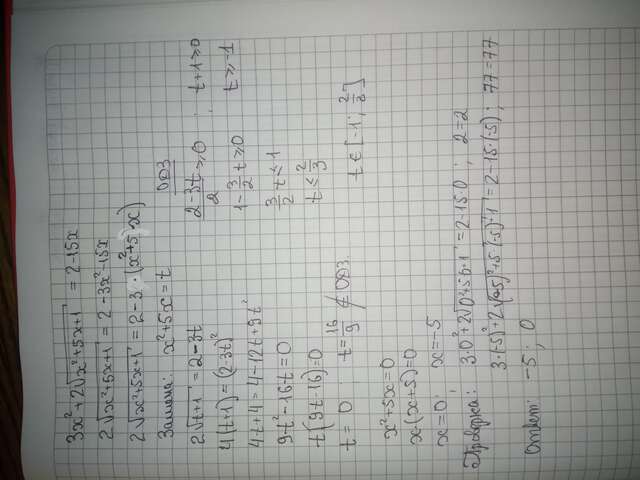 3x²+2√x²+5x+1 = 2-15x
2√x²+5x+1 = 2-3x²-15x
2√x²+5x+1 = 2-3·(x²+5x)
Замена: x²+5x=t
ОДЗ
2√t+1 = 2-3t
4(t+1)=(2-3t)²
4t+4=4-12t+9t²
9t²-16t=0
t(9t-16)=0
t=0 t=16/9 ∉ ОДЗ.
2-3t/2 ≥0, t+1≥0
1-3/2t≥0 t≥-1
3/2t≤1
t≤2/3
t∈[-1; 2/3]
x²+5x=0
x·(x+5)=0
x=0; x=-5
Проверка: 3·0²+2√0+5·0·1=2-15·0; 2=2
3·(-5)²+2√(-5)²+5·(-5)+1=2-15·(-5); 77=77
Ответ: -5; 0